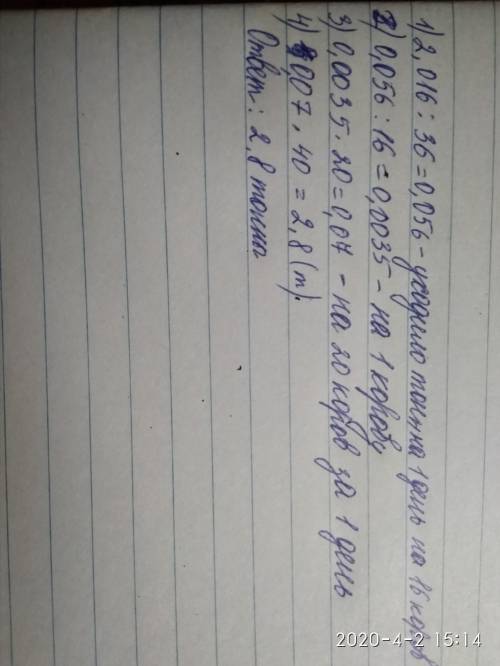 1) 2,016 : 36 = 0,056 - уходило тонн на 1 день на 16 коров
2) 0,056 : 16 = 0,0035 - на 1 корову
3) 0,0035 · 20 = 0,07 - на 20 коров за 1 день
4) 0,07 · 40 = 2,8 (т).
Ответ: 2,8 тонны
2020-4-2 15:14